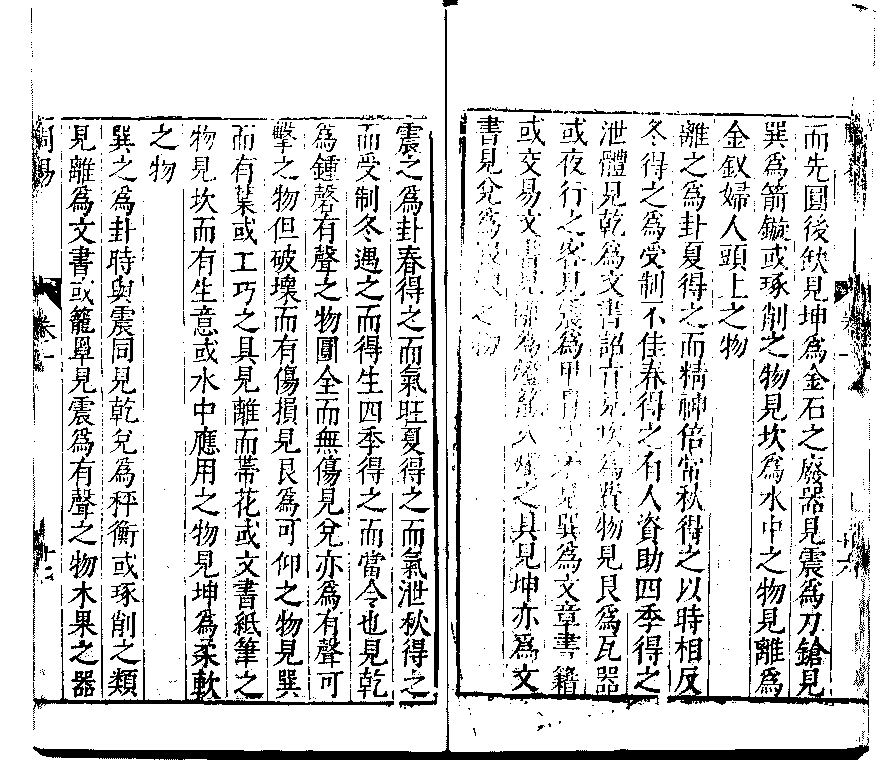 而先圓後缺見坤為金石之廢器見震為刀鎗見
巽為箭鏇或琢削之物見坎為水中之物見離為
金釵婦人頭上之物
離之為卦夏得之而精神倍常秋得之以時相反
冬得之為受制不佳春得之有人資助四季得之
泄體見乾為文書詔見為物見艮為瓦器
或夜行之客見震為甲見巽為文章書籍
或交易文書見離為之具見坤亦為文
書見兌為之物
震之為卦春得之而氣旺夏得之而氣泄秋得之
而受制冬遇之而得生四季得之而當令也見乾
為鍾磬有聲之物圓全而無傷見兌亦為有聲可
擊之物但破壞而有傷損見艮為可仰之物見巽
而有葉或工巧之具見離而帶花或文書紙筆之
物見坎而有生意或水中應用之物見坤為柔軟
之物
巽之為卦時與震同見乾兌為秤衡或琢削之類
見離為文書或籠罩見震為有聲之物木果之器
周易
卷一